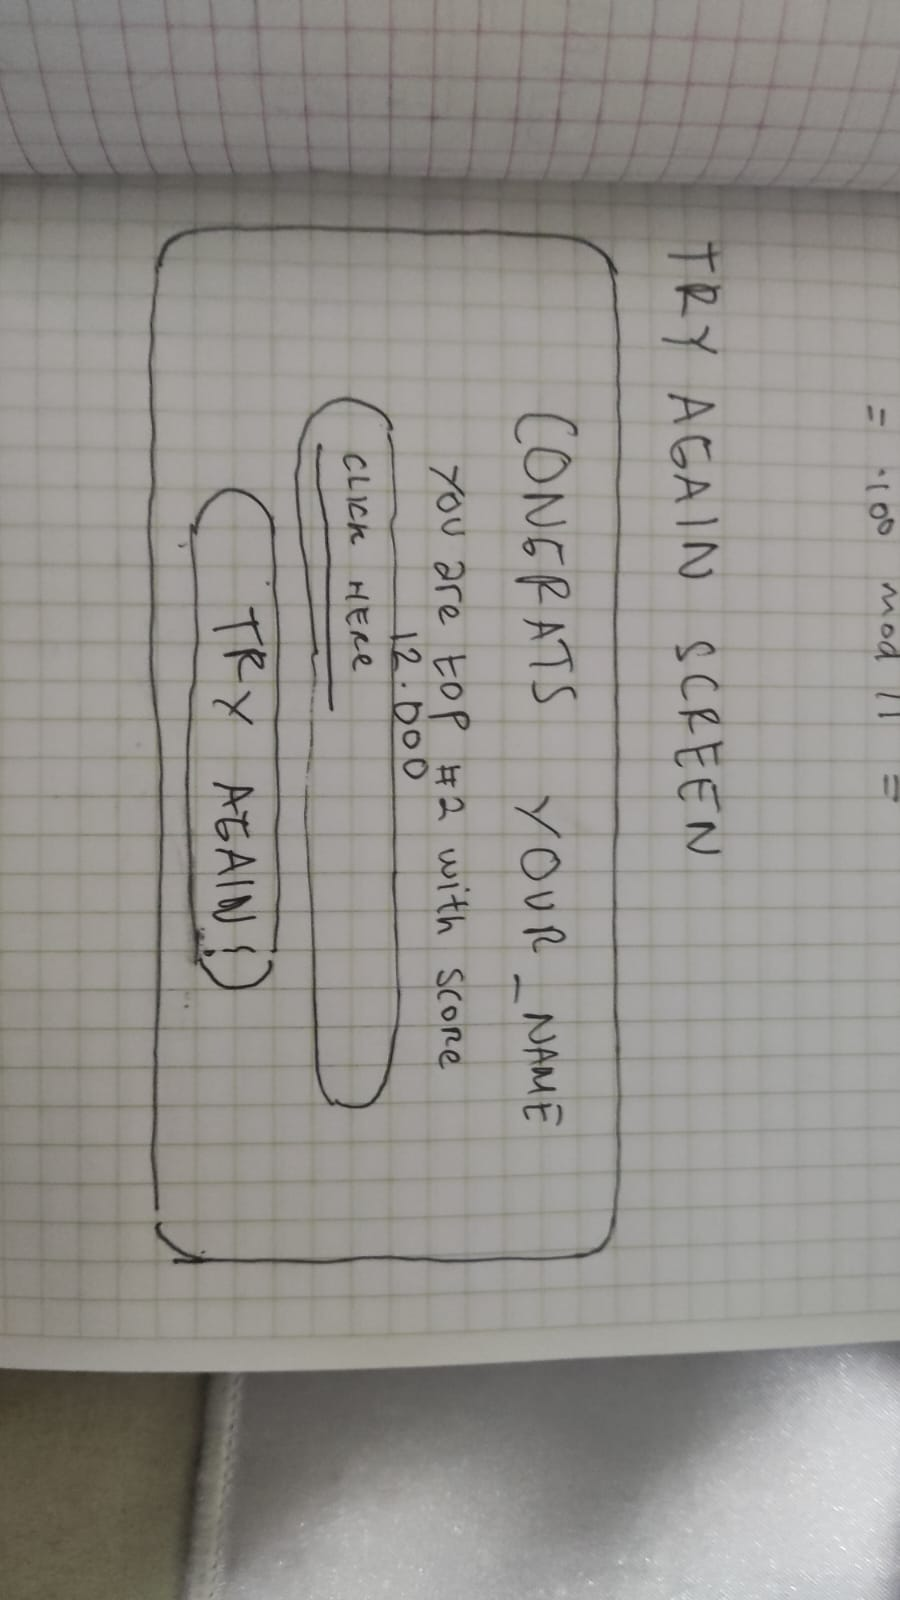 = -100 mod 11 =
TRY AGAIN SCREEN
CONGRATS YOUR_NAME
You are top #2 with score
12.000
CLICK HERE
TRY AGAIN!